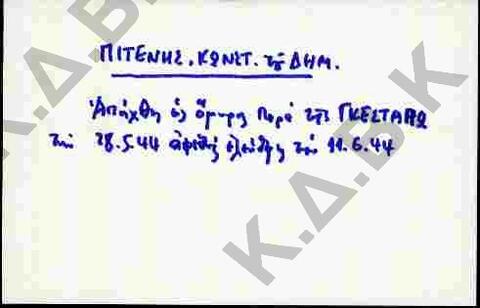 ΠΙΤΕΝΗΣ, ΚΩΝΣΤ. τοῦ ΔΗΜ.
Ἀπήχθη ὡς ὅμηρος παρὰ τῆς ΓΚΕΣΤΑΠΩ
τὴν 28.5.44 ἀφεθεὶς ἐλεύθερος τὴν 11.6.44
Κ.Δ.Β.Κ
Κ.Δ.Β.Κ